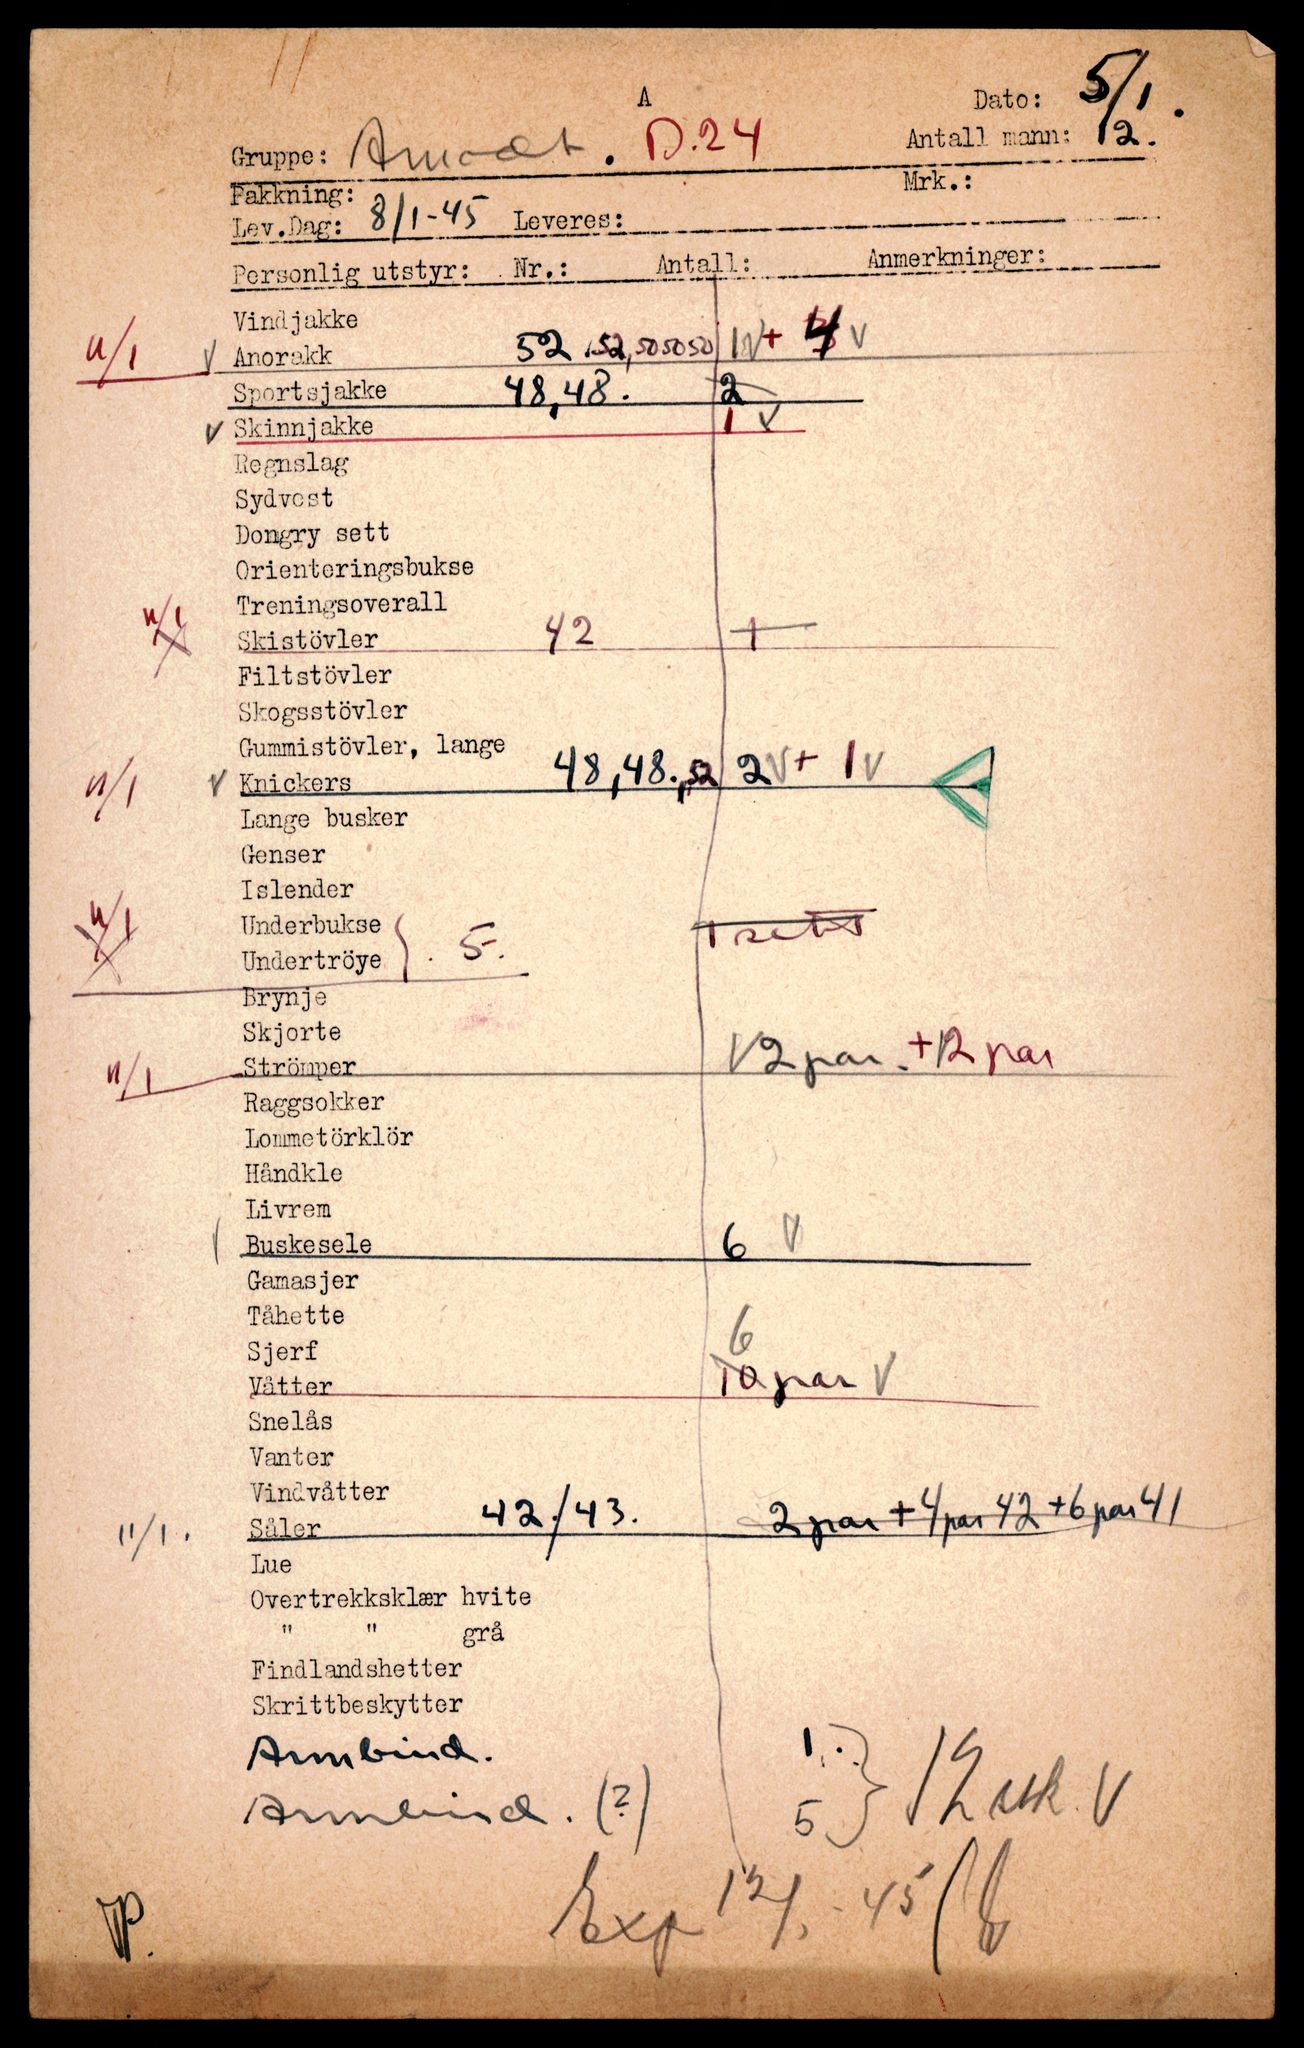 A
Dato: 5/1.
Gruppe: D.24 Antall mann: 12.
Pakkning: Mrk.:
Lev.Dag: 8/1-45 Leveres:
Personlig utstyr: Nr.: Antall: Anmerkninger:
Vindjakke
11/1 V Anorakk 52 ,52,50 50 50 1 V + 4 V
Sportsjakke 48,48. 2
V Skinnjakke 1 V
Regnslag
Sydvest
Dongry sett
Orienteringsbukse
Treningsoverall
11/1 Skistövler 42 1
Filtstövler
Skogsstövler
Gummistövler, lange
11/1 V Knickers 48,48.,52 2 V + 1 V
Lange busker
Genser
Islender
11/1 Underbukse 1 sett
Undertröye } . 5.
Brynje
Skjorte
11/1 Strömper V 2 par. + 12 par
Raggsokker
Lommetörklör
Håndkle
Livrem
V Buskesele 6 V
Gamasjer
Tåhette
Sjerf 6
Våtter 10 par V
Snelås
Vanter
Vindvåtter
11/1. Såler 42./43. 2 par + 4 par 42 + 6 par 41
Lue
Overtrekksklær hvite
" " grå
Findlandshetter
Skrittbeskytter
Armbind. 1.
Armbind. (?) 5 } 12 stk. V
Exp 12/1-45
JP.